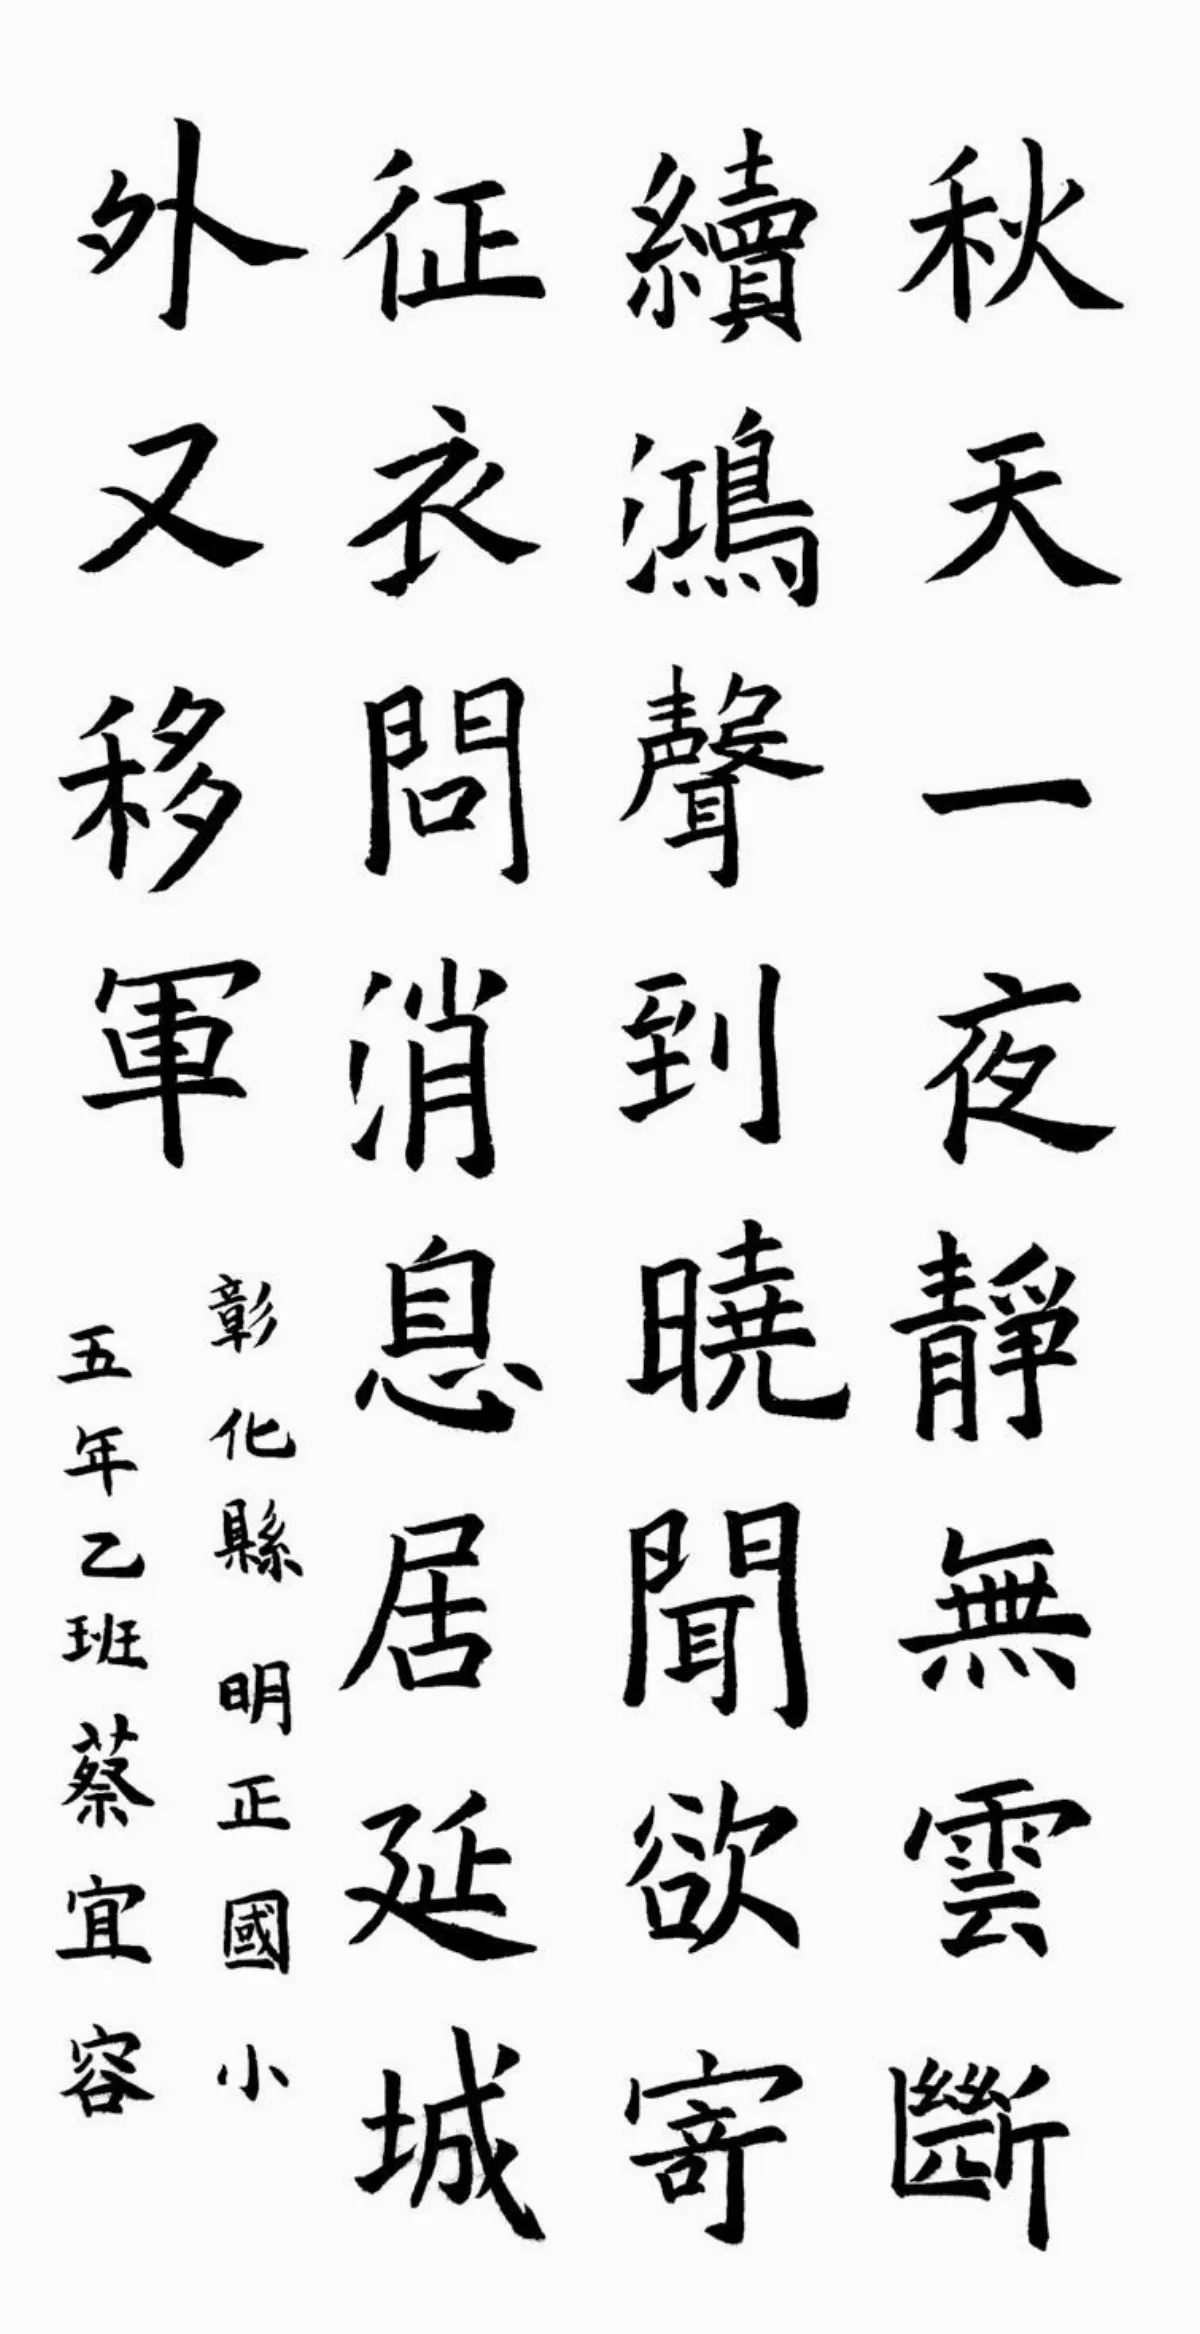 秋天一夜靜無雲斷
續鴻聲到曉聞欲寄
征衣問消息居延城
外又移軍
彰化縣 明正國小
五年乙班蔡宜容